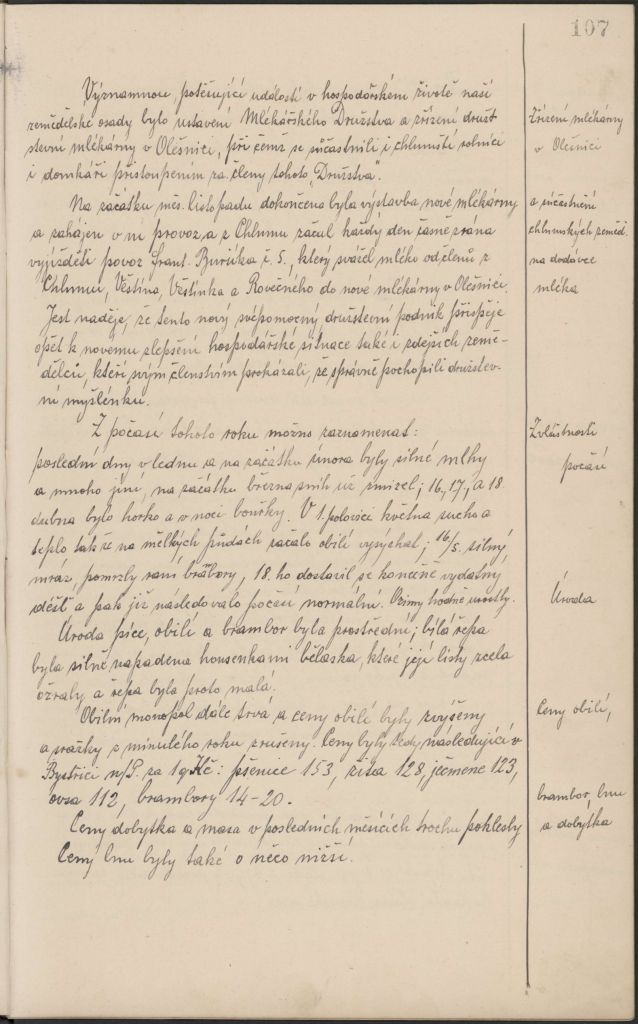 107
Významnou, potěšující událostí v hospodářském životě naší
zemědělské osady bylo ustavení Mlékářského Družstva a zřízení druž-
stevní mlékárny v Olešnici, při čemž se súčastnili i chlumští rolníci
i domkáři přistoupením za členy tohoto „Družstva".
Zřízení mlékárny
v Olešnici
Na začátku měs. listopadu dokončena byla výstavba nové mlékárny
a zahájen v ní provoz a z Chlumu začal každý den časně zrána
vyjížděti povoz Frant. Buriáka č. 5., který svážel mléko od členů z
Chlumu, Věstína, Věstínka a Rovečného do nové mlékárny v Olešnici.
Jest naděje, že tento nový svépomocný družstevní podnik přispěje
opět k novému zlepšení hospodářské situace také i zdejších země-
dělců, kteří svým členstvím prokázali, že správně pochopili družstev-
ní myšlénku.
a súčastnění
chlumských zeměd.
na dodávce
mléka
Z počasí tohoto roku možno zaznamenat:
poslední dny v lednu a na začátku února byly silné mlhy
a mnoho jíní, na začátku března sníh už zmizel; 16., 17., a 18.
dubna bylo horko a v noci bouřky. V 1. polovici května sucho a
teplo takže na mělkých půdách začalo obilí vysýchat; 16/5. silný
mráz, pomrzly rané brambory, 18. ho dostavil se konečně vydatný
déšť a pak již následovalo počasí normální. Ozimy hodně vzrostly.
Zvláštnosti
počasí
Úroda píce, obilí a brambor byla prostřední; bílá řepa
byla silně napadena housenkami běláska, které její listy zcela
ožraly a řepa byla proto malá.
Úroda
Obilní monopol dále trvá a ceny obilí byly zvýšeny
a srážky z minulého roku zrušeny. Ceny byly tedy následující v
Bystřici n/P. za 1 q Kč: pšenice 153, žita 128, ječmene 123,
ovsa 112, brambory 14-20.
Ceny obilí,
Ceny dobytka a masa v posledních měsících trochu poklesly
Ceny lnu byly také o něco nižší.
brambor, lnu
a dobytka